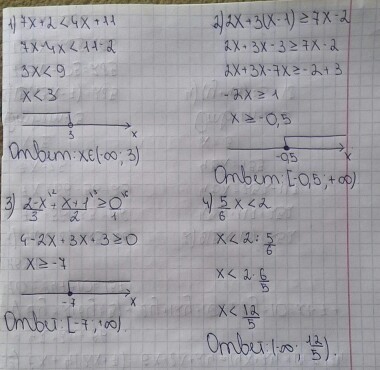 1) 7x+2<4x+11
7x-4x<11-2
3x<9
x<3
3 x
Ответ: x∈(-∞; 3)
2) 2x+3(x-1)≥7x-2
2x+3x-3≥7x-2
2x+3x-7x≥-2+3
-2x≥1
x≥-0,5
-0,5 x
Ответ: [-0,5; +∞)
3) (2-x)/3 + (x+1)/2 ≥ 0
4-2x+3x+3≥0
x≥-7
-7 x
Ответ: [-7; ∞).
4) 5/6 x<2
x<2:5/6
x<2·6/5
x<12/5
Ответ: (-∞; 12/5).